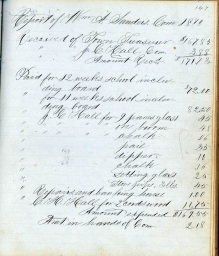 Report of Wm A. Sanders Com 1899
Received of Town Treasurer
" " J C Hall Com 3.85
Amount Recd. $171.73
Paid for 12 weeks school inclu-
ding board 72.00
for 11 weeks school inclu-
ding board
J C Hall for 9 panes glass 45
" " " broom
" " " chalk
" " " pail
" " " dipper 10
" " " chalk 10
" " " setting glass 25
" " " Stove pipe, Elbo 45
" Repairs and banking house 1.00
C. H. Hall for 2 cord wood 11.75
Amount expended $169.55
Bal in hands of Com 2.18